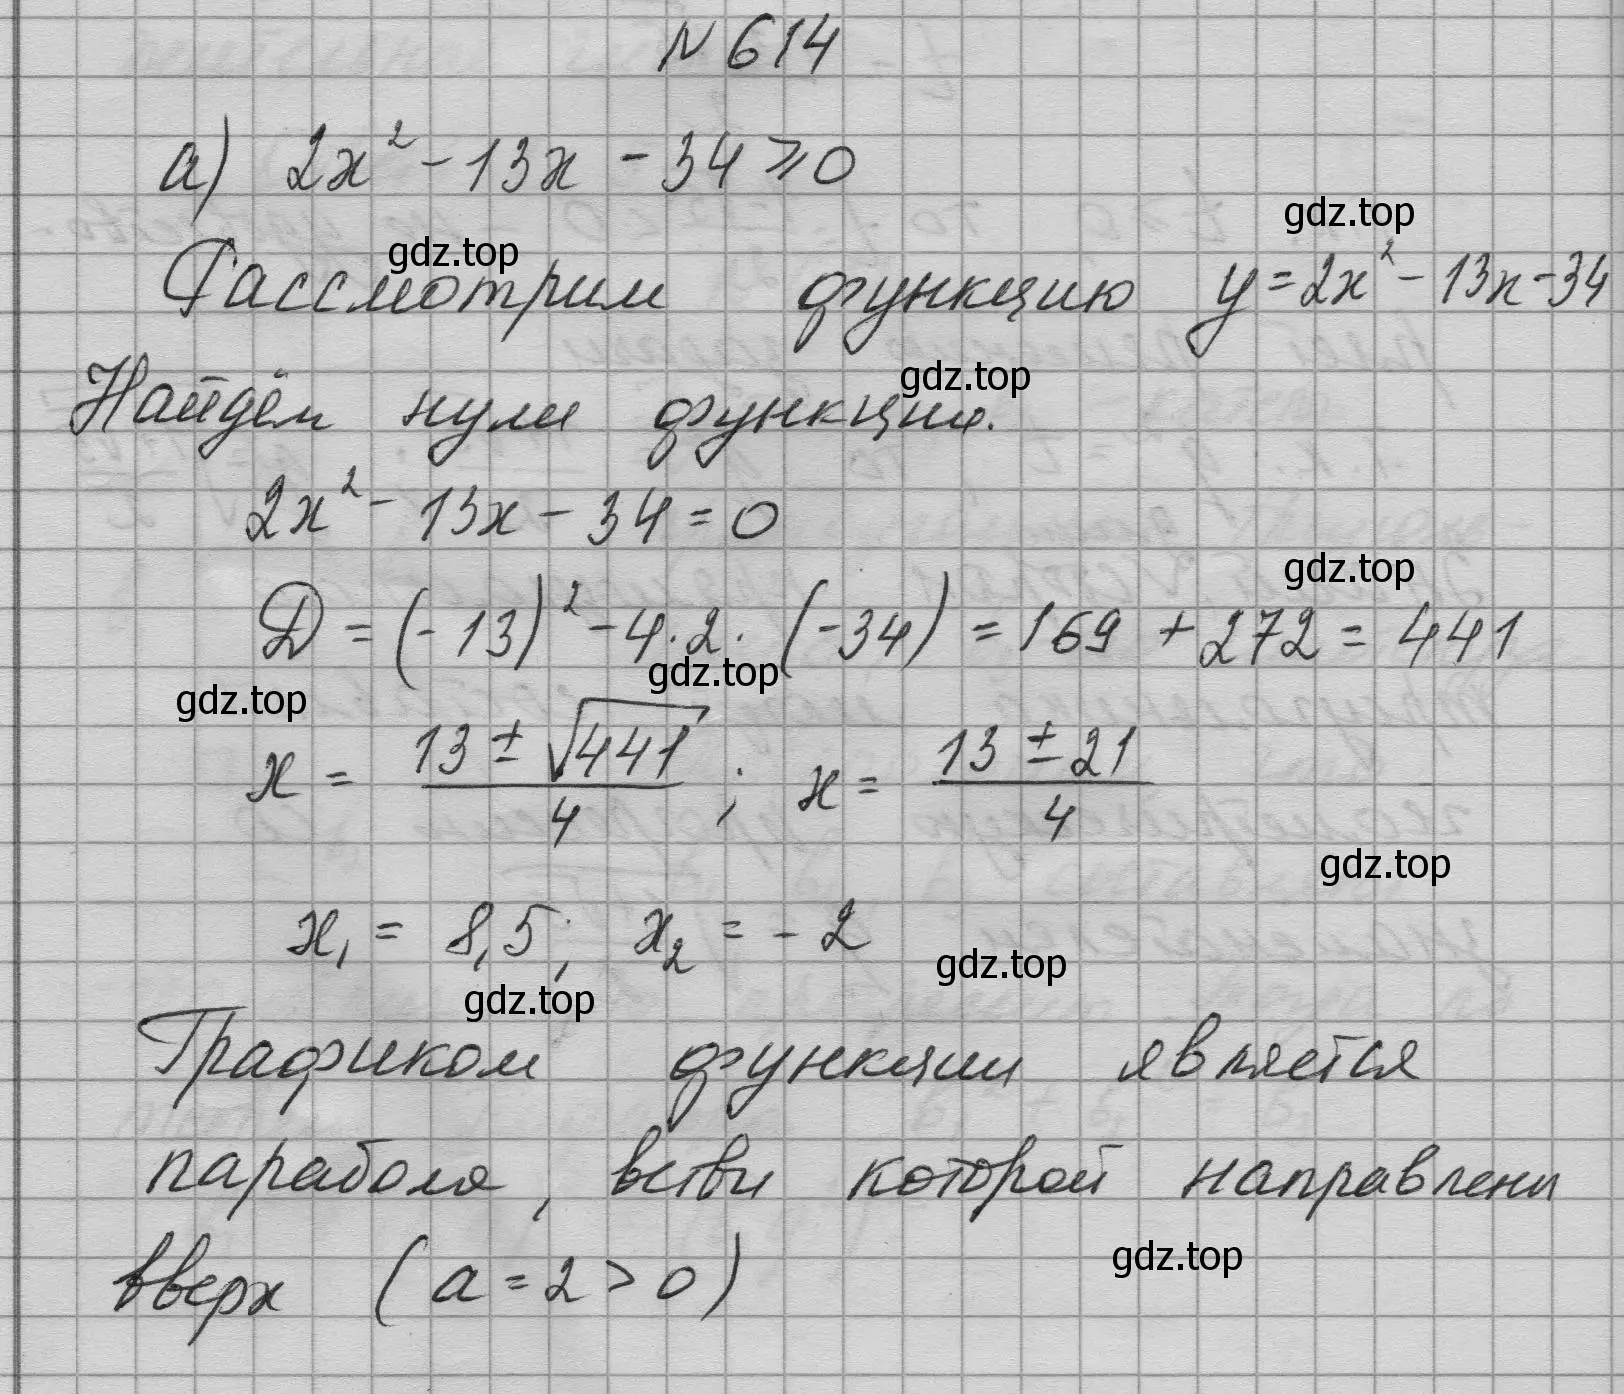 № 614
а) 2x² - 13x - 34 ⩾ 0
gdz.top
gdz.top
Рассмотрим функцию y = 2x² - 13x - 34
gdz.top
Найдём нули функции.
2x² - 13x - 34 = 0
gdz.top
D = (-13)² - 4·2·(-34) = 169 + 272 = 441
gdz.top
gdz.top
x = (13 ± √441)/4 ; x = (13 ± 21)/4
gdz.top
x₁ = 8,5; x₂ = -2
gdz.top
gdz.top
Графиком функции является
парабола, ветви которой направлены
вверх (a = 2 > 0)
gdz.top